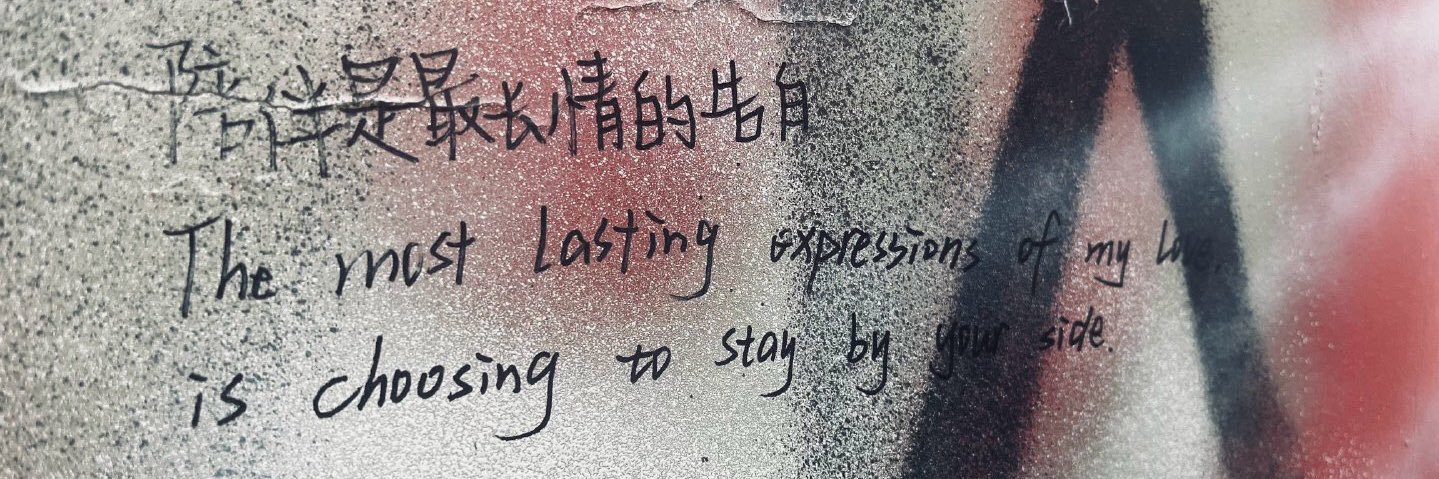 陪伴是最长情的告白
The most lasting expressions of my love,
is choosing to stay by your side.